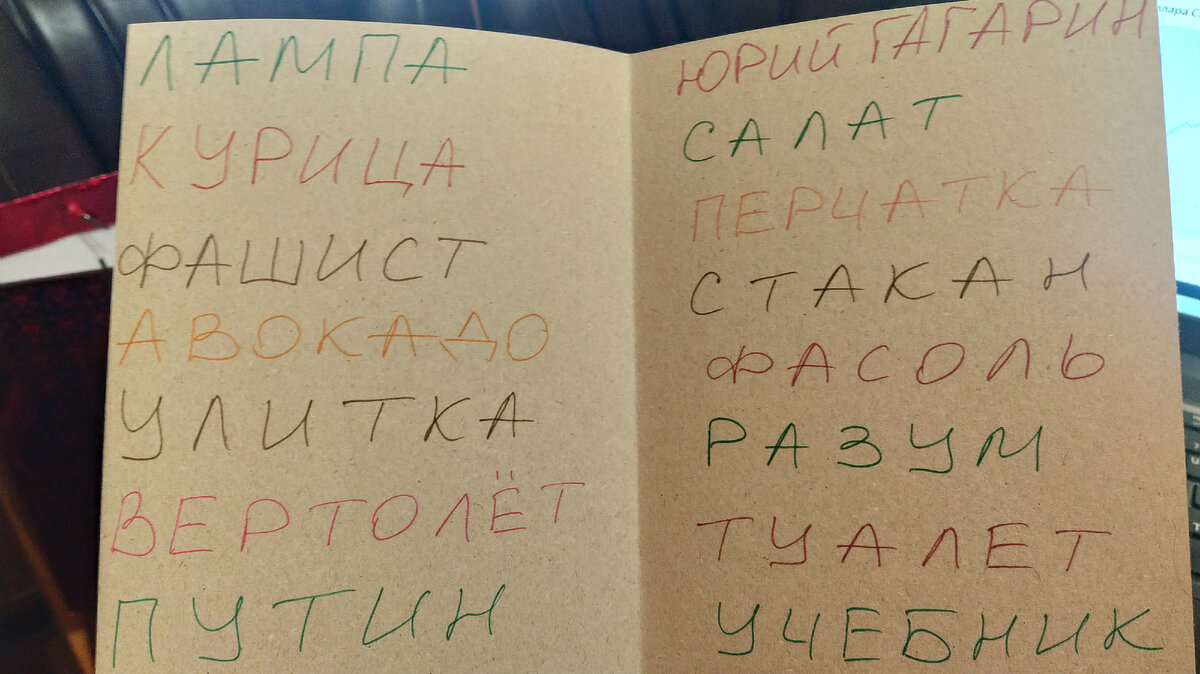 ЛАМПА
КУРИЦА
ФАШИСТ
АВОКАДО
УЛИТКА
ВЕРТОЛЁТ
ПУТИН
ЮРИЙ ГАГАРИН
САЛАТ
ПЕРЧАТКА
СТАКАН
ФАСОЛЬ
РАЗУМ
ТУАЛЕТ
УЧЕБНИК